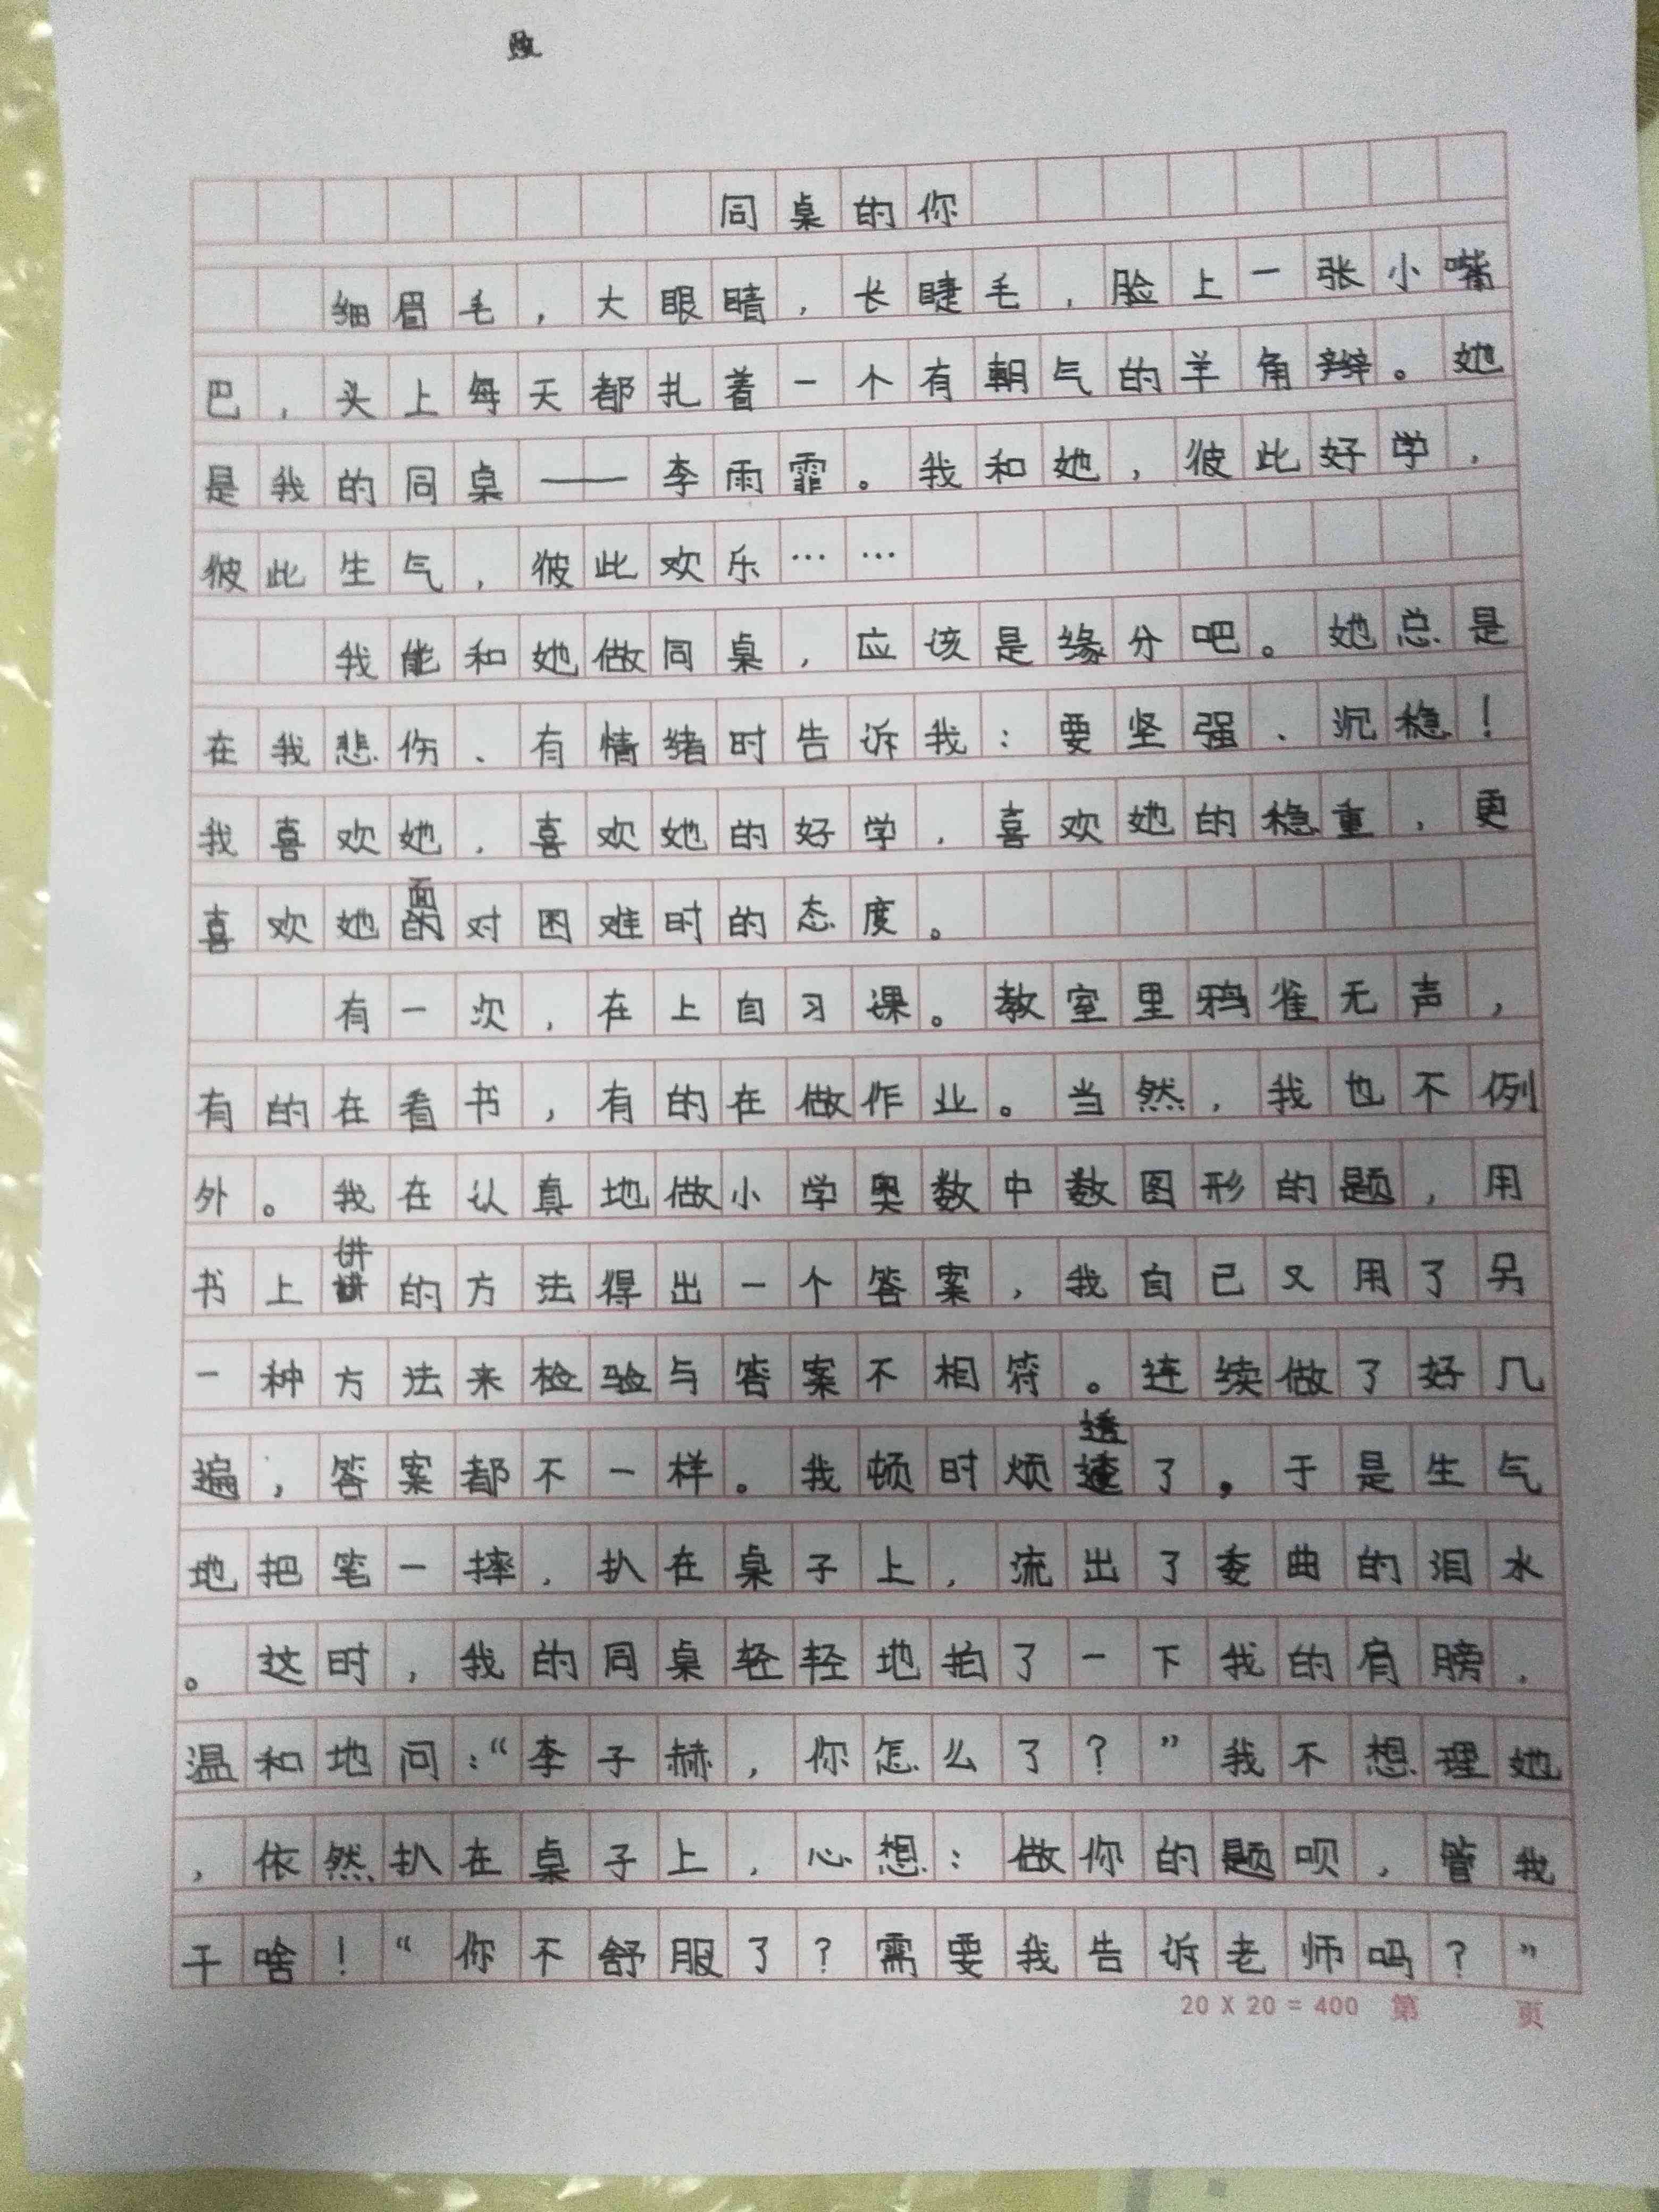 同桌的你
细眉毛，大眼睛，长睫毛，脸上一张小嘴
巴，头上每天都扎着一个有朝气的羊角辫。她
是我的同桌——李雨霏。我和她，彼此好学，
彼此生气，彼此欢乐……
我能和她做同桌，应该是缘分吧。她总是
在我悲伤、有情绪时告诉我：要坚强、沉稳！
我喜欢她，喜欢她的好学，喜欢她的稳重，更
面
喜欢她的对困难时的态度。
有一次，在上自习课。教室里鸦雀无声，
有的在看书，有的在做作业。当然，我也不例
外。我在认真地做小学奥数中数图形的题，用
讲
书上的方法得出一个答案，我自己又用了另
一种方法来检验与答案不相符。连续做了好几
透
遍，答案都不一样。我顿时烦了，于是生气
地把笔一摔，扒在桌子上，流出了委曲的泪水
。这时，我的同桌轻轻地拍了一下我的肩膀，
温和地问：“李子赫，你怎么了？”我不想理她
，依然扒在桌子上，心想：做你的题呗，管我
干啥！“你不舒服了？需要我告诉老师吗？”
20 X 20 = 400 第 页